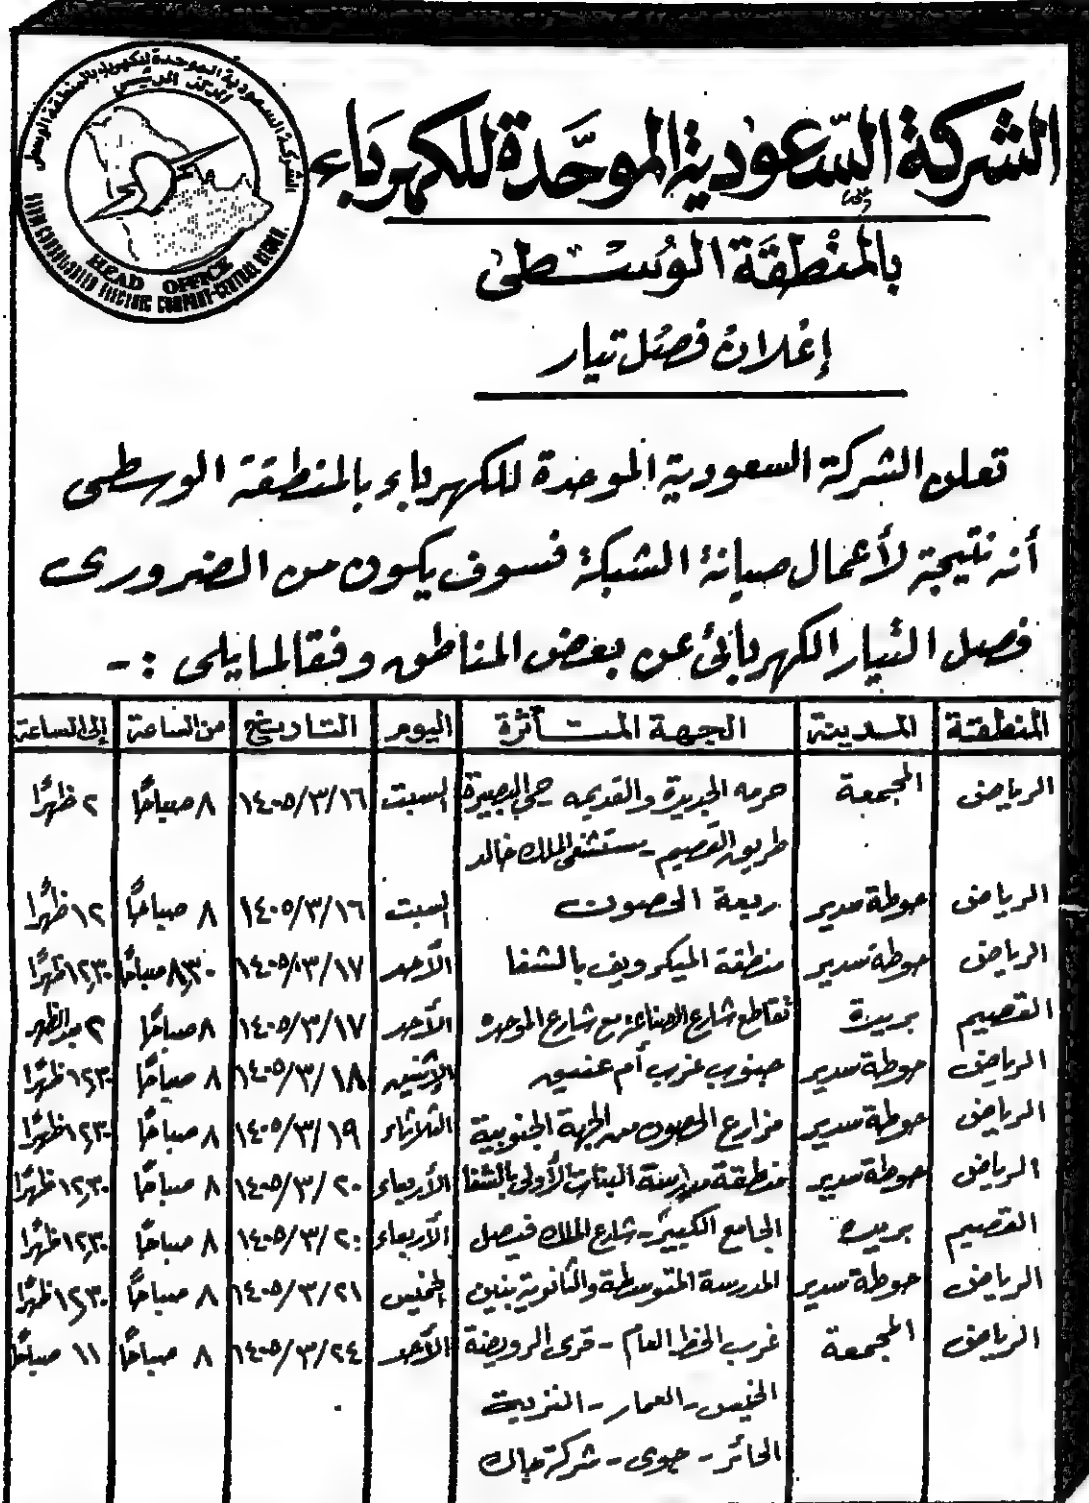 الشركة السعودية الموحدة للكهرباء بالمنطقة الوسطى
المركز الرئيسي
HEAD OFFICE
ELECTRIC COMPANY-CENTRAL REGION.
الشركة السّعودية الموحَّدة للكهرَباء
بالمنْطقَة الوُسْطى
إعْلان فصْل تيار
تعلن الشركة السعودية الموحدة للكهرباء بالمنطقة الوسطى
أنه نتيجة لأعمال صيانة الشبكة فسوف يكون من الضرورى
فصل التيار الكهربائى عن بعض المناطق وفقا لما يلى :-
المنطقة المدينة الجهة المتأثرة اليوم التاريخ من الساعة إلى الساعة
الرياض المجمعة حرمه الجديدة والقديمه - حي البصيرة السبت ١٤٠٥/٣/١٦ ٨ صباحًا ٢ ظهرًا
طريق القصيم - مستشفى الملك خالد
الرياض حوطة سدير ربعة الحصون السبت ١٤٠٥/٣/١٦ ٨ صباحًا ١٢ ظهرًا
الرياض حوطة سدير منطقة الميكرويف بالشفا الأحد ١٤٠٥/٣/١٧ ٨,٣٠ صباحًا ١٢,٣٠ ظهرًا
القصيم بريدة تقاطع شارع الصناعة مع شارع الوحده الأحد ١٤٠٥/٣/١٧ ٨ صباحًا ٢ بعد الظهر
الرياض حوطة سدير جنوب غرب أم عنيق الإثنين ١٤٠٥/٣/١٨ ٨ صباحًا ١٢,٣٠ ظهرًا
الرياض حوطة سدير مزارع الحصون من الجهة الجنوبية الثلاثاء ١٤٠٥/٣/١٩ ٨ صباحًا ١٢,٣٠ ظهرًا
الرياض حوطة سدير منطقة مدرسة البنات الأولى بالشفا الأربعاء ١٤٠٥/٣/٢٠ ٨ صباحًا ١٢,٣٠ ظهرًا
القصيم بريده الجامع الكبير - شارع الملك فيصل الأربعاء ١٤٠٥/٣/٢٠ ٨ صباحًا ١٢,٣٠ ظهرًا
الرياض حوطة سدير المدرسة المتوسطة والثانوية بنين الخميس ١٤٠٥/٣/٢١ ٨ صباحًا ١٢,٣٠ ظهرًا
الرياض المجمعة غرب الخط العام - قرى الرويضة الأحد ١٤٠٥/٣/٢٤ ٨ صباحًا ١١ صباحًا
الخيس - العمار - النزية
الحائر - جوى - شركة